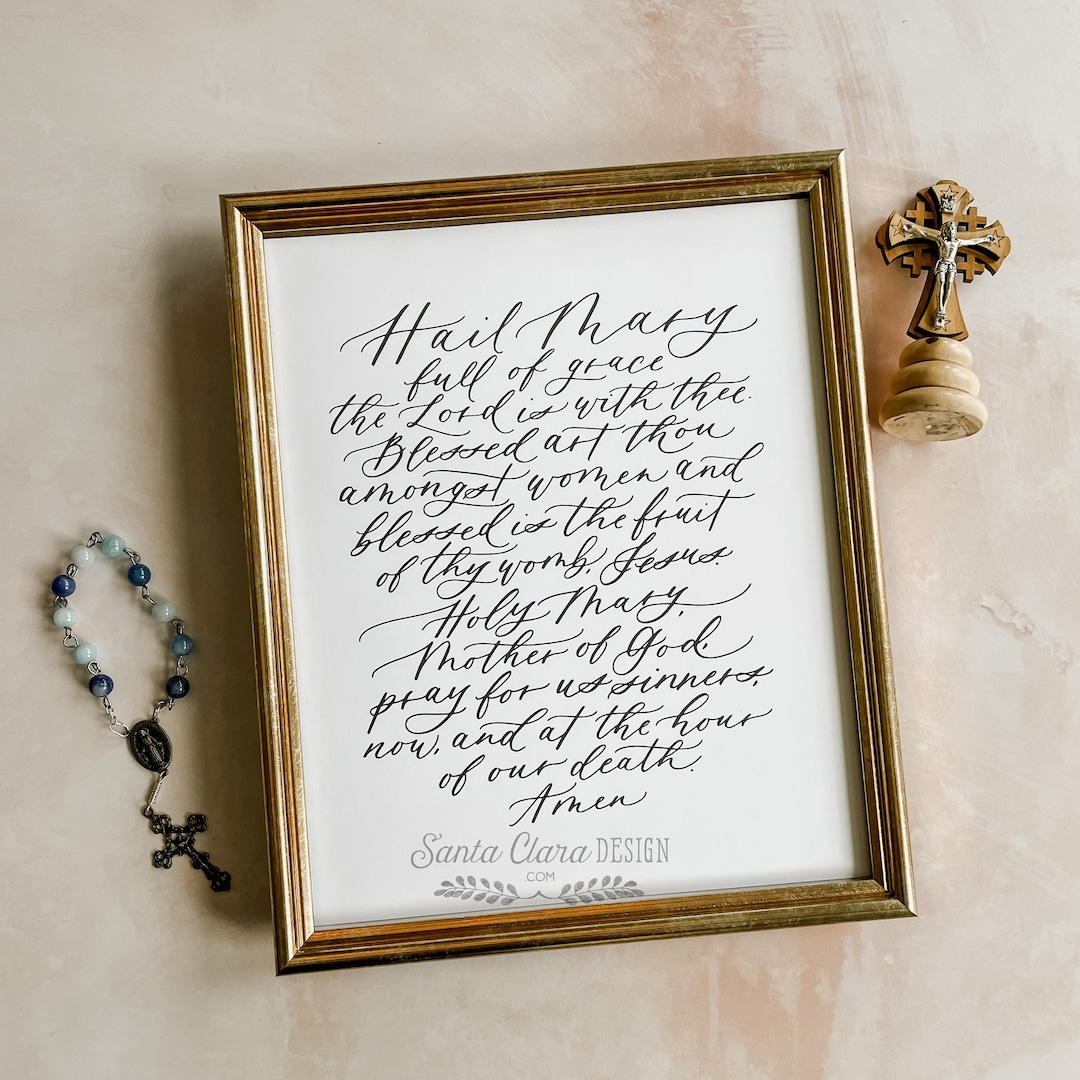 Hail Mary
full of grace
the Lord is with thee.
Blessed art thou
amongst women and
blessed is the fruit
of thy womb, Jesus.
Holy Mary,
Mother of God,
pray for us sinners,
now, and at the hour
of our death.
Amen
Santa Clara DESIGN
.COM